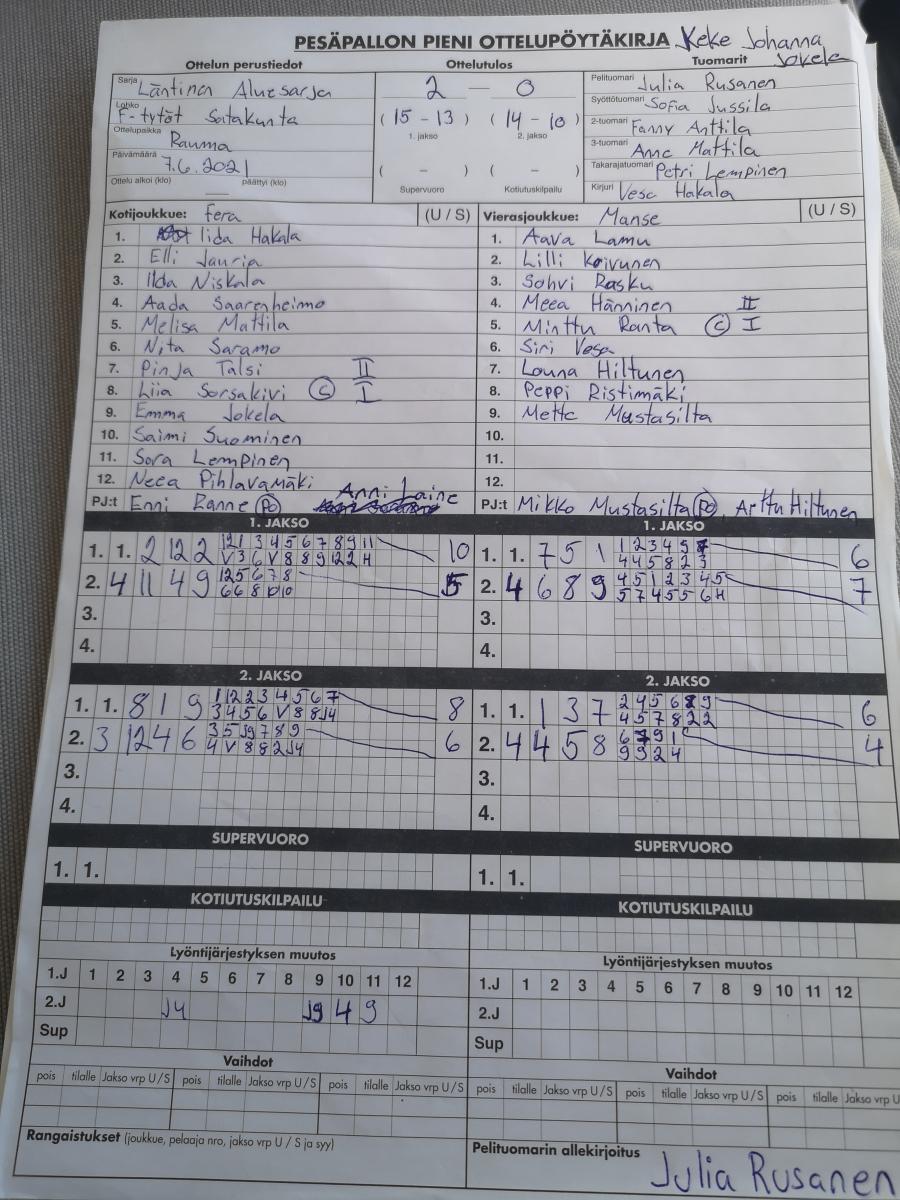 PESÄPALLON PIENI OTTELUPÖYTÄKIRJA Keke Johanna
Jokela
Ottelun perustiedot Ottelutulos Tuomarit
Sarja Läntinen Aluesarja
Lohko F-tytöt Satakunta
Ottelupaikka Rauma
Päivämäärä 7.6.2021
Ottelu alkoi (klo) — päättyi (klo)
2 — 0
(15 - 13) (14 - 10)
1. jakso 2. jakso
( - ) ( - )
Supervuoro Kotiutuskilpailu
Pelituomari Julia Rusanen
Syöttötuomari Sofia Jussila
2-tuomari Fanny Anttila
3-tuomari Anne Mattila
Takarajatuomari Petri Lempinen
Kirjuri Vesa Hakala
Kotijoukkue: Fera (U / S)
1. Iida Hakala
2. Elli Jauria
3. Ilda Niskala
4. Aada Saarenheimo
5. Melisa Mattila
6. Nita Saramo
7. Pinja Talsi II
8. Liia Sorsakivi C I
9. Emma Jokela
10. Saimi Suominen
11. Sara Lempinen
12. Neea Pihlavamäki
PJ:t Enni Ranne PO Anni Laine
Vierasjoukkue: Manse (U / S)
1. Aava Lamu
2. Lilli Koivunen
3. Sohvi Rasku
4. Meea Hänninen II
5. Minttu Ranta C I
6. Siri Vesa
7. Louna Hiltunen
8. Peppi Ristimäki
9. Mette Mustasilta
10.
11.
12.
PJ:t Mikko Mustasilta PO, Arttu Hiltunen
1. JAKSO
1. 1. 2 12 2 12 1 3 4 5 6 7 8 9 11 10
V 3 6 V 8 8 9 12 2 H
2. 4 11 4 9 12 5 6 7 8 5
6 6 8 10 10
3.
4.
1. JAKSO
1. 1. 7 5 1 1 2 3 4 5 6
4 4 5 8 2 3
2. 4 6 8 9 4 5 1 2 3 4 5 7
5 7 4 5 5 6 H
3.
4.
2. JAKSO
1. 1. 8 1 9 1 12 2 3 4 5 6 7 8
3 4 5 6 V 8 8 J4
2. 3 12 4 6 3 5 J9 7 8 9 6
4 V 8 8 2 J4
3.
4.
2. JAKSO
1. 1. 1 3 7 2 4 5 6 8 9 6
4 5 7 8 2 2
2. 4 4 5 8 6 7 9 1 4
9 9 2 4
3.
4.
SUPERVUORO
1. 1.
SUPERVUORO
1. 1.
KOTIUTUSKILPAILU
KOTIUTUSKILPAILU
Lyöntijärjestyksen muutos
1.J 1 2 3 4 5 6 7 8 9 10 11 12
2.J J4 J9 4 9
Sup
Lyöntijärjestyksen muutos
1.J 1 2 3 4 5 6 7 8 9 10 11 12
2.J
Sup
Vaihdot
pois tilalle Jakso vrp U / S pois tilalle Jakso vrp U / S pois tilalle Jakso vrp U / S
Vaihdot
pois tilalle Jakso vrp U / S pois tilalle Jakso vrp U / S pois tilalle Jakso vrp U
Rangaistukset (joukkue, pelaaja nro, jakso vrp U / S ja syy)
Pelituomarin allekirjoitus Julia Rusanen